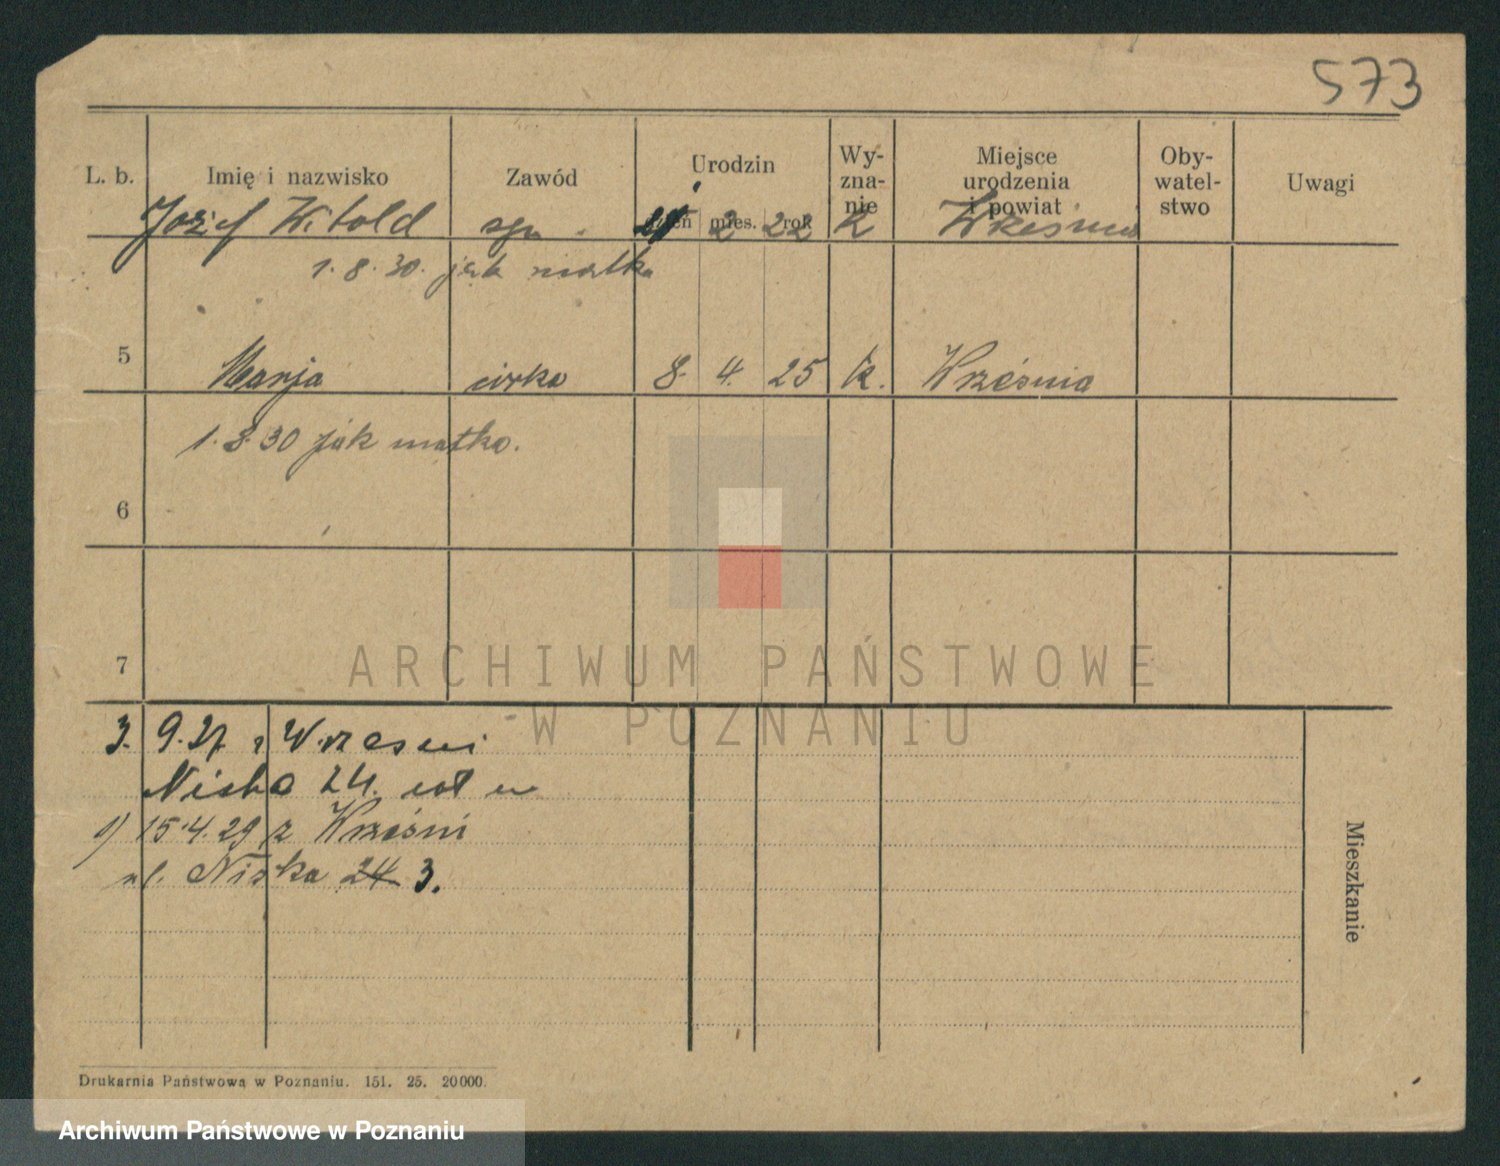 573
L. b. Imię i nazwisko Zawód Urodzin dzień mies. rok Wy-zna-nie Miejsce urodzenia i powiat Oby-watel-stwo Uwagi
Józef Witold 2 22 k Września
1. 8. 30. jak matka
5 Marja córka 8. 4. 25 k. Września
1. 8. 30 jak matka.
6
7
ARCHIWUM PAŃSTWOWE
W POZNANIU
3. 9. 27 z Wrzesni
Niska 24.
1) 15.4.29 z Wrześni
ul. Niska 24 3.
Mieszkanie
Drukarnia Państwowa w Poznaniu. 151. 25. 20000.
Archiwum Państwowe w Poznaniu